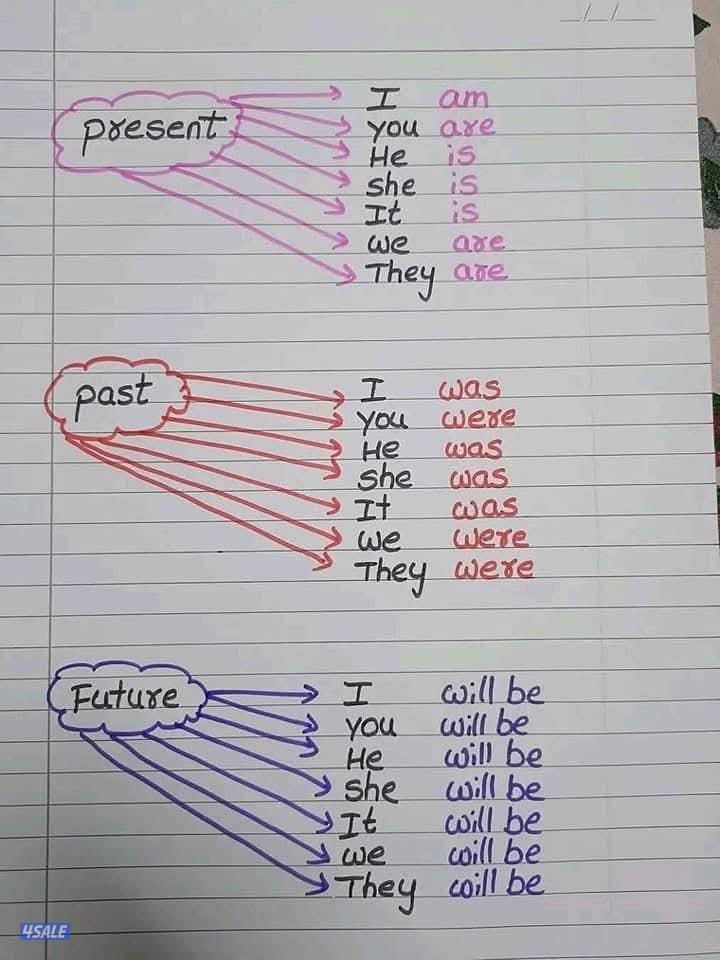 __/__/____
present
I am
you are
He is
she is
It is
we are
They are
past
I was
you were
He was
she was
It was
we were
They were
Future
I will be
you will be
He will be
she will be
It will be
we will be
They will be
4SALE